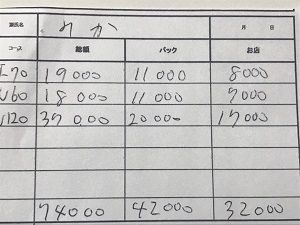 源氏名 りか 月 日
コース 総額 バック お店
70 19000 11000 8000
60 18000 11000 7000
120 37000 20000 17000
74000 42000 32000